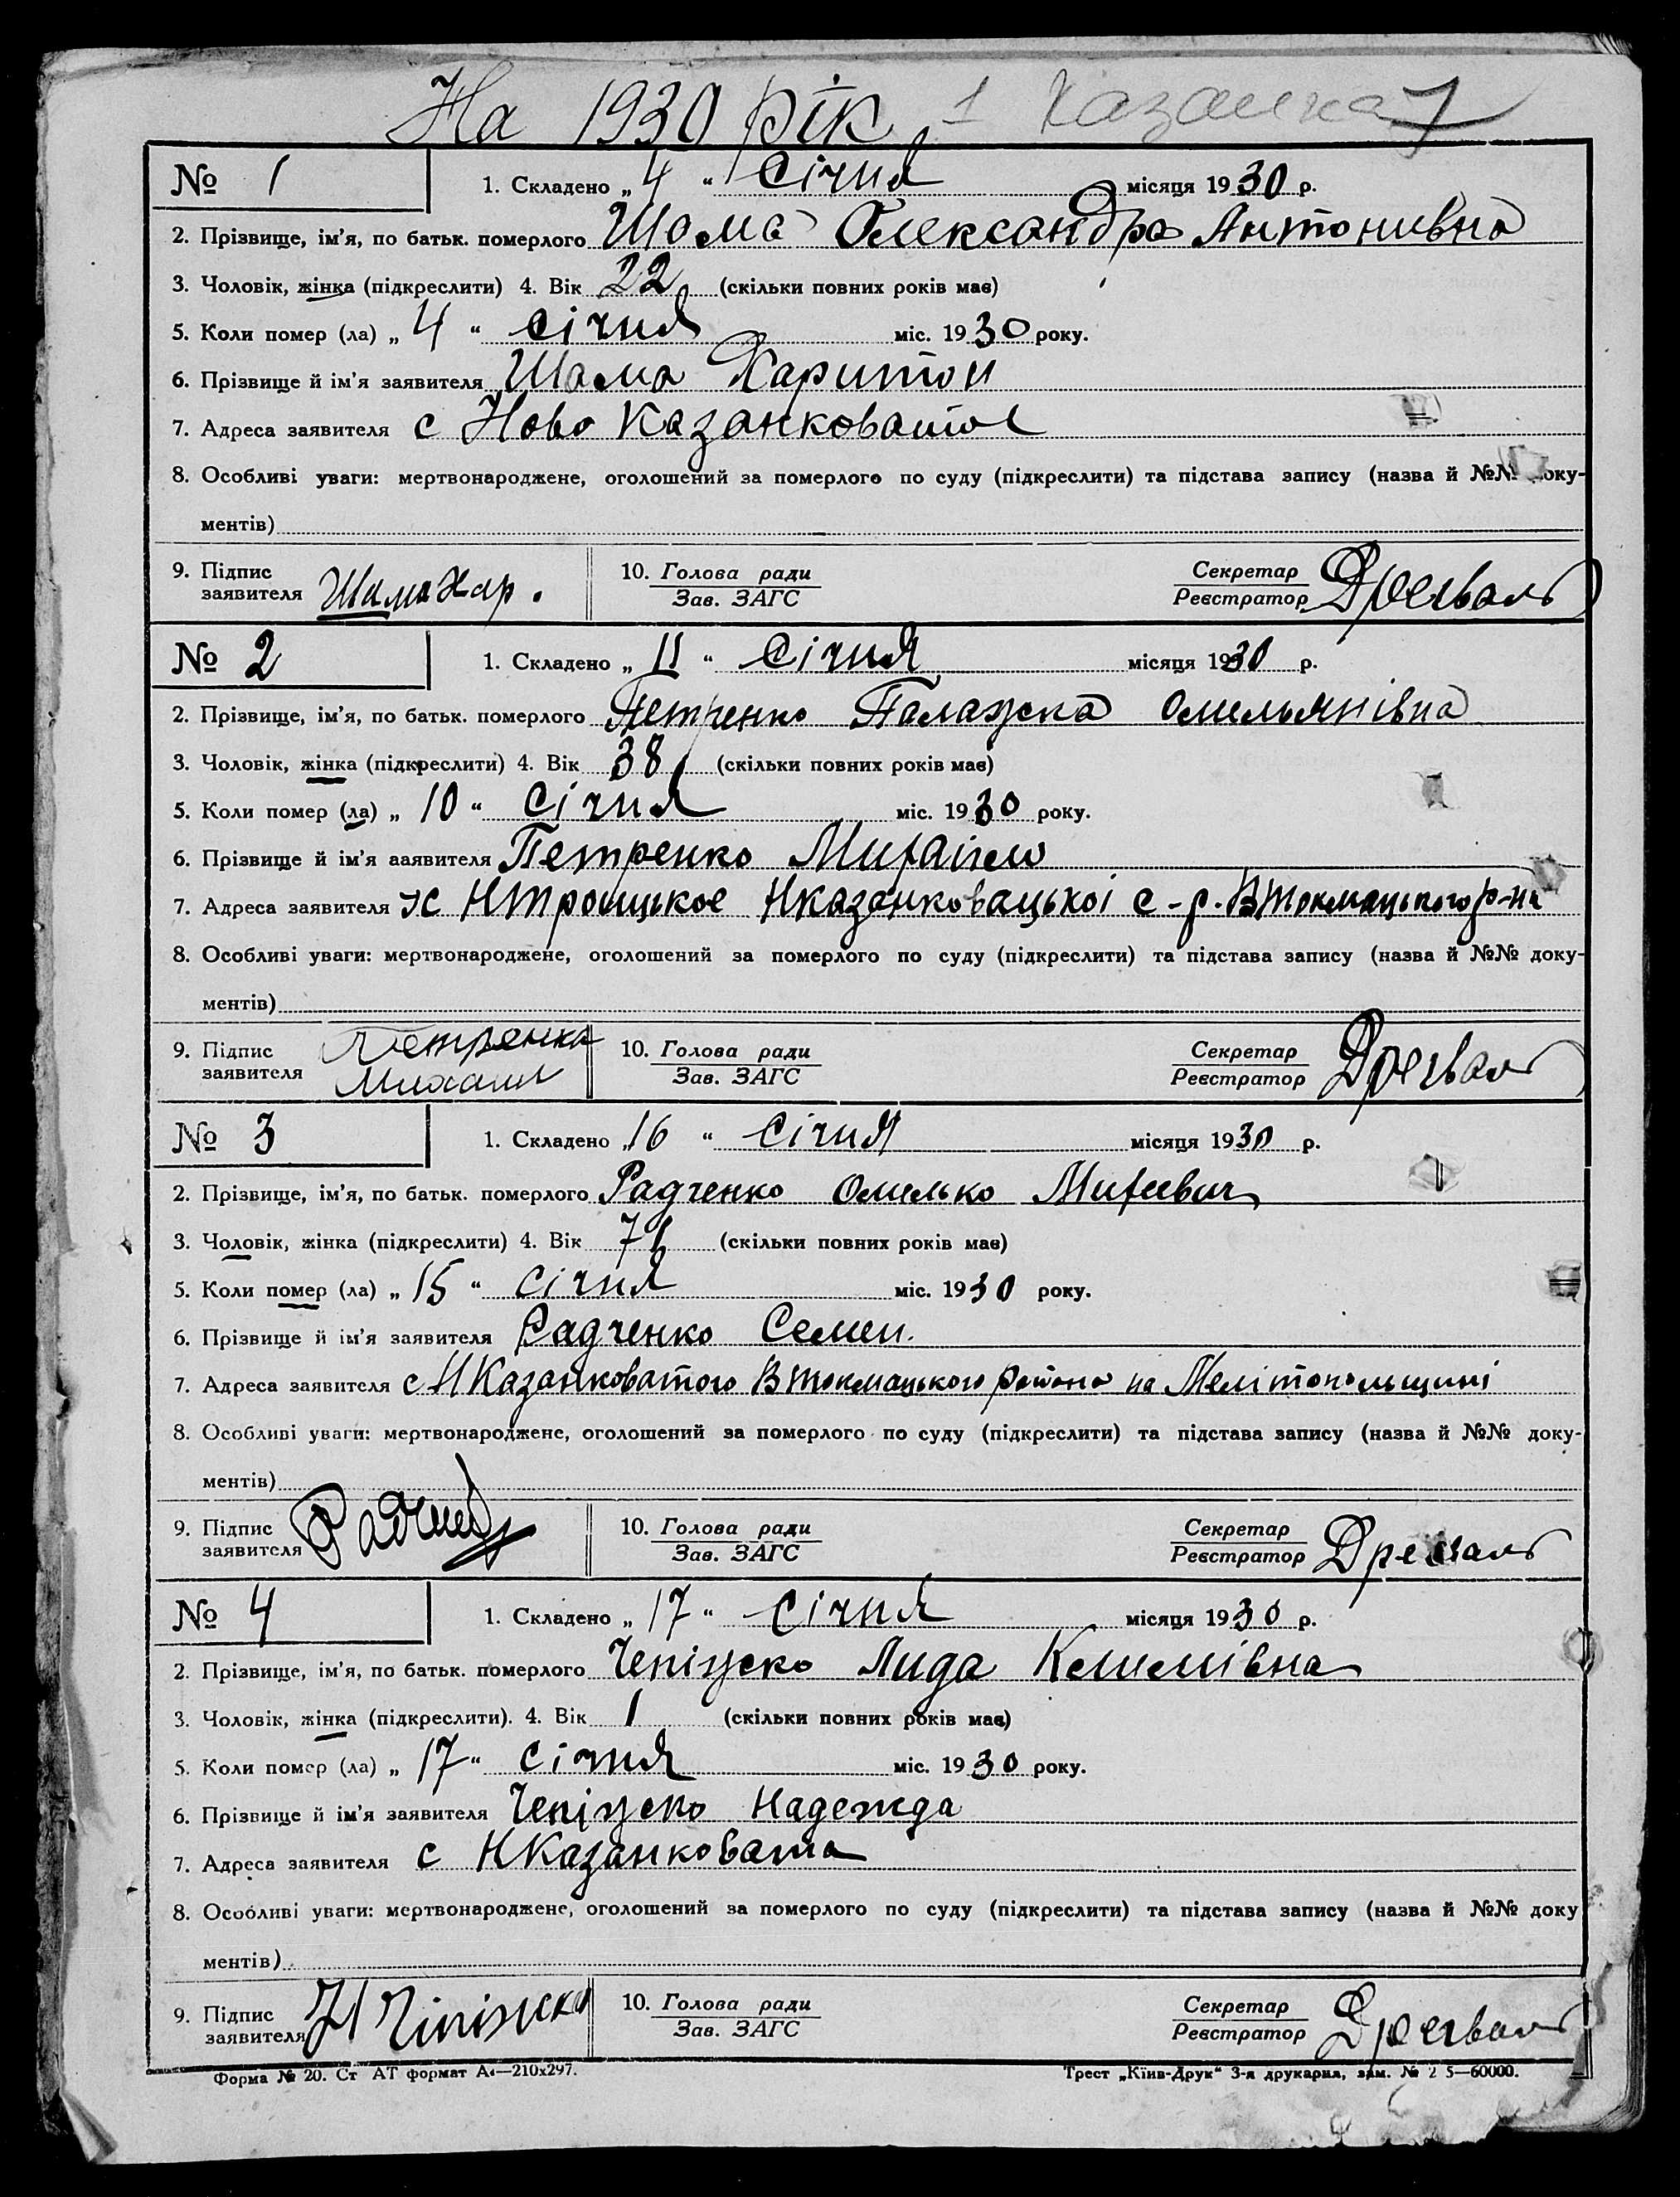 На 1930 рік 1 Казанка
№ 1 1. Складено „ 4 “ Січня місяця 1930 р.
2. Прізвище, ім’я, по батьк. померлого Шама Олександра Антонивна
3. Чоловік, жінка (підкреслити) 4. Вік 22 (скільки повних років має)
5. Коли помер (ла) „ 4 “ Січня міс. 1930 року.
6. Прізвище й ім’я заявителя Шама Харитон
7. Адреса заявителя с Ново Казанковатое
8. Особливі уваги: мертвонароджене, оголошений за померлого по суду (підкреслити) та підстава запису (назва й №№ доку-
ментів)
9. Підпис заявителя Шама Хар. 10. Голова ради Зав. ЗАГС Секретар Реєстратор
№ 2 1. Складено „ 11 “ Січня місяця 1930 р.
2. Прізвище, ім’я, по батьк. померлого Петренко Палажка Омельянівна
3. Чоловік, жінка (підкреслити) 4. Вік 38 (скільки повних років має)
5. Коли помер (ла) „ 10 “ Січня міс. 1930 року.
6. Прізвище й ім’я заявителя Петренко Михайло
7. Адреса заявителя Нтроицькое Нказанковацькоі с-р. Втокмацького р-на
8. Особливі уваги: мертвонароджене, оголошений за померлого по суду (підкреслити) та підстава запису (назва й №№ доку-
ментів)
9. Підпис заявителя Петренко Михаил 10. Голова ради Зав. ЗАГС Секретар Реєстратор
№ 3 1. Складено „ 16 “ Січня місяця 1930 р.
2. Прізвище, ім’я, по батьк. померлого Радченко Омелько Михеевич
3. Чоловік, жінка (підкреслити) 4. Вік 71 (скільки повних років має)
5. Коли помер (ла) „ 15 “ Січня міс. 1930 року.
6. Прізвище й ім’я заявителя Радченко Семен.
7. Адреса заявителя с НКазанковатого Втокмацького района на Мелітопольщині
8. Особливі уваги: мертвонароджене, оголошений за померлого по суду (підкреслити) та підстава запису (назва й №№ доку-
ментів)
9. Підпис заявителя 10. Голова ради Зав. ЗАГС Секретар Реєстратор
№ 4 1. Складено „ 17 “ Січня місяця 1930 р.
2. Прізвище, ім’я, по батьк. померлого Чепіжко Лида Климівна
3. Чоловік, жінка (підкреслити). 4. Вік 1 (скільки повних років має)
5. Коли помер (ла) „ 17 “ Січня міс. 1930 року.
6. Прізвище й ім’я заявителя Чепіжко Надежда
7. Адреса заявителя с НКазанковата
8. Особливі уваги: мертвонароджене, оголошений за померлого по суду (підкреслити) та підстава запису (назва й №№ доку
ментів)
9. Підпис заявителя Н Чіпіжко 10. Голова ради Зав. ЗАГС Секретар Реєстратор
Форма № 20. Ст АТ формат А4—210х297. Трест „Київ-Друк“ 3-я друкарня, зам. № 2 5—60000.